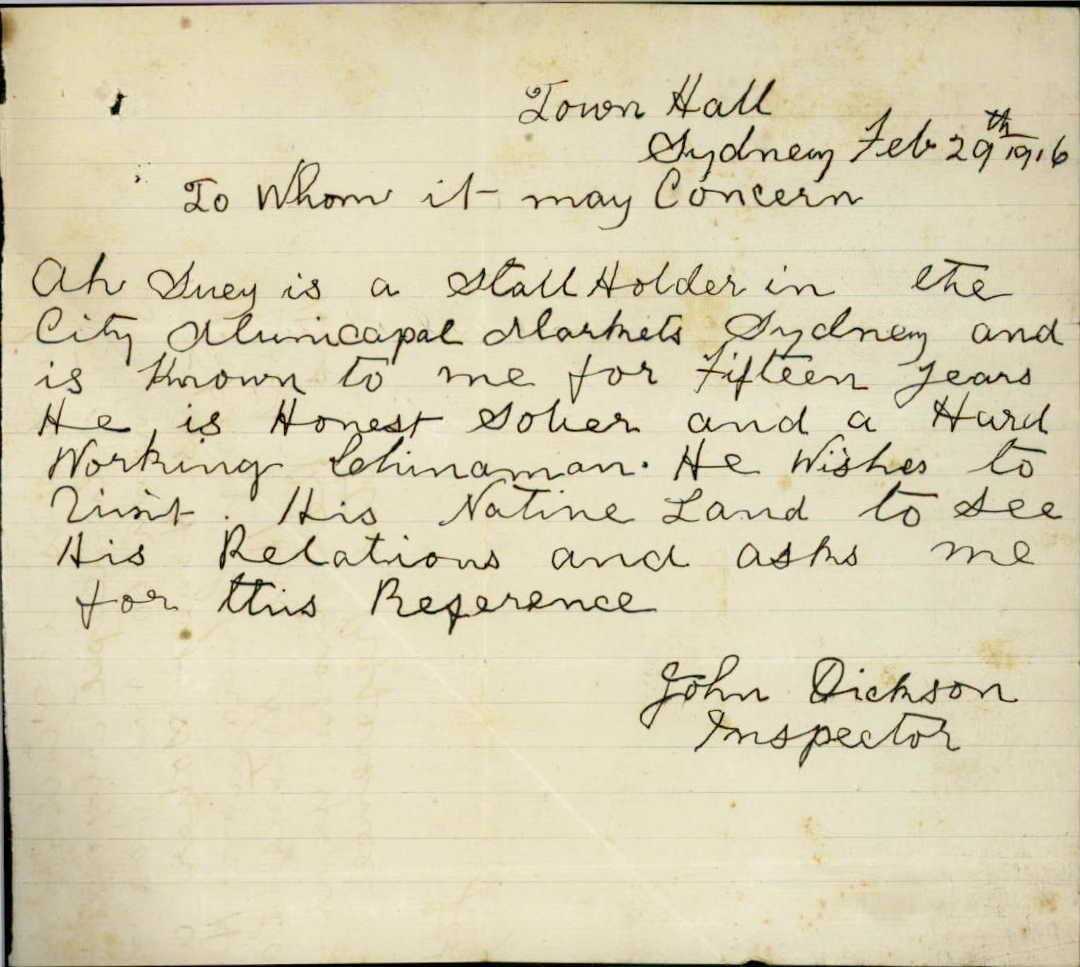 Town Hall
Sydney Feb 29th 1916
To Whom it may Concern
Ah Suey is a Stall Holder in the
City Municapal Markets Sydney and
is Known to me for Fifteen Years
He is Honest Sober and a Hard
Working Chinaman. He Wishes to
Visit. His Native Land to See
His Relations and asks me
for this Reference
John Dickson
Inspector